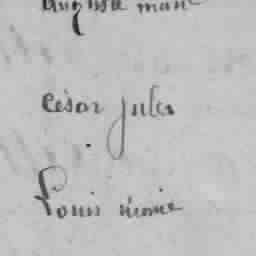 auguste marie
César jules
Louis marie